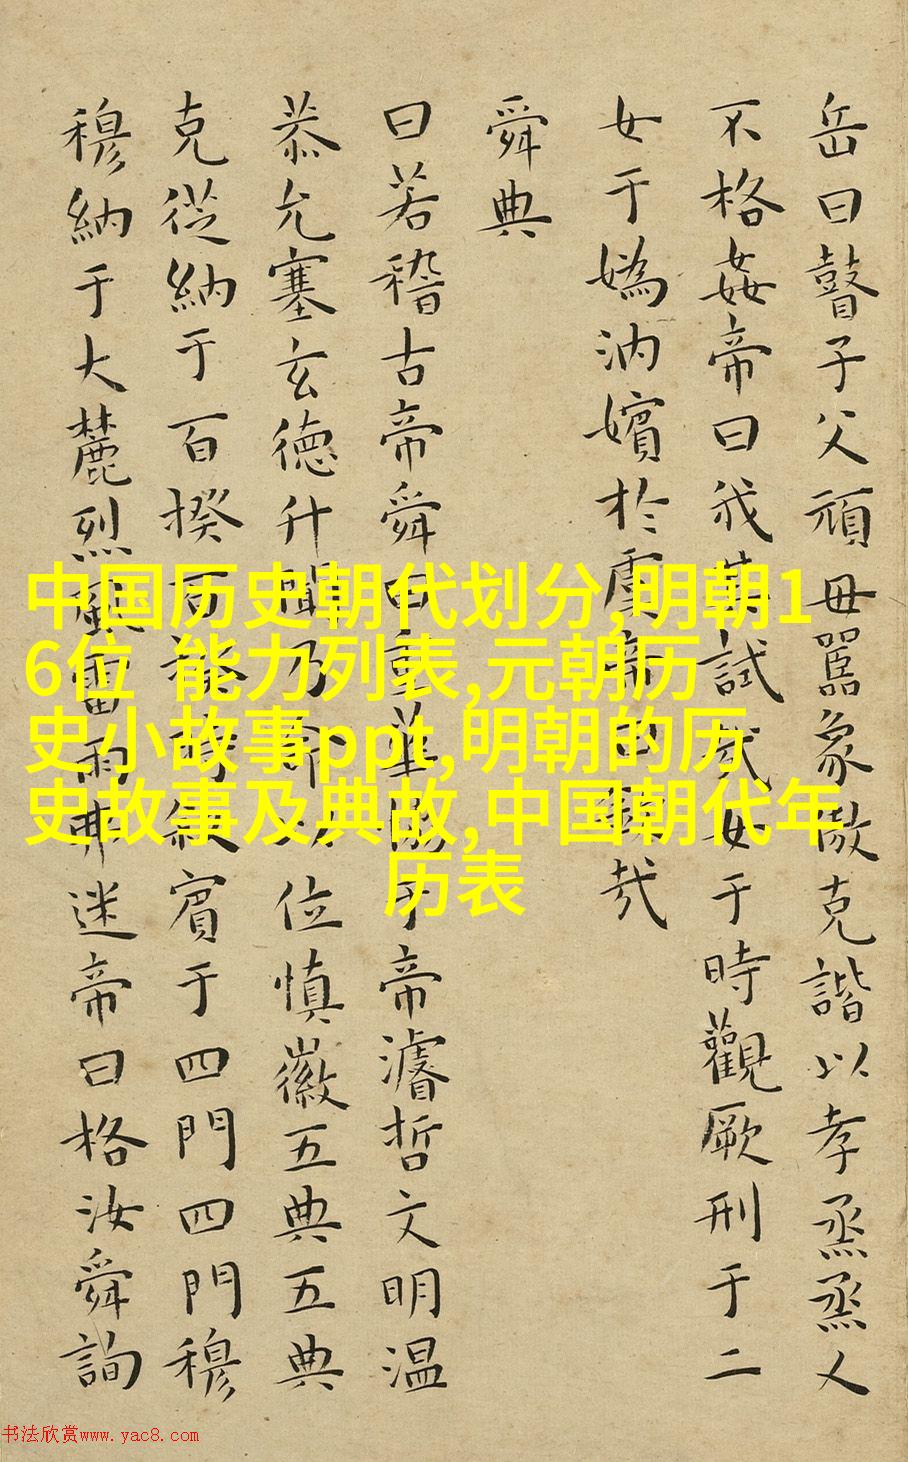 岳曰瞽子父頑毋嚚象傲克諧以孝烝烝乂
不格姦帝曰我其試哉女于時觀厥刑于二
女于媯汭嬪於虞帝曰欽哉
舜典
曰若稽古帝舜曰重華協于帝濬哲文明温
恭允塞玄德升聞乃命以位慎徽五典五典
克從納于百揆百揆時敘賓于四門四門穆
穆納于大麓烈風雷雨弗迷帝曰格汝舜詢
中国历史朝代划分,明朝1
6位 能力列表,元朝历
史小故事ppt,明朝的历
史故事及典故,中国朝代年
历表
书法欣赏www.yac8.com